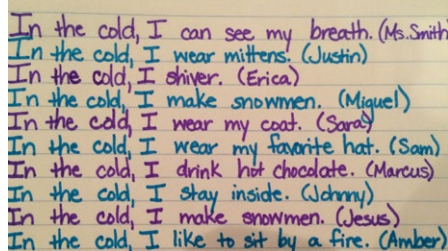 In the cold, I can see my breath. (Ms. Smith
In the cold, I wear mittens. (Justin)
In the cold, I shiver. (Erica)
In the cold, I make snowmen. (Miguel)
In the cold, I wear my coat. (Sara)
In the cold, I wear my favorite hat. (Sam)
In the cold, I drink hot chocolate. (Marcus)
In the cold, I stay inside. (Johnny)
In the cold, I make snowmen. (Jesus)
In the cold, I like to sit by a fire. (Amber